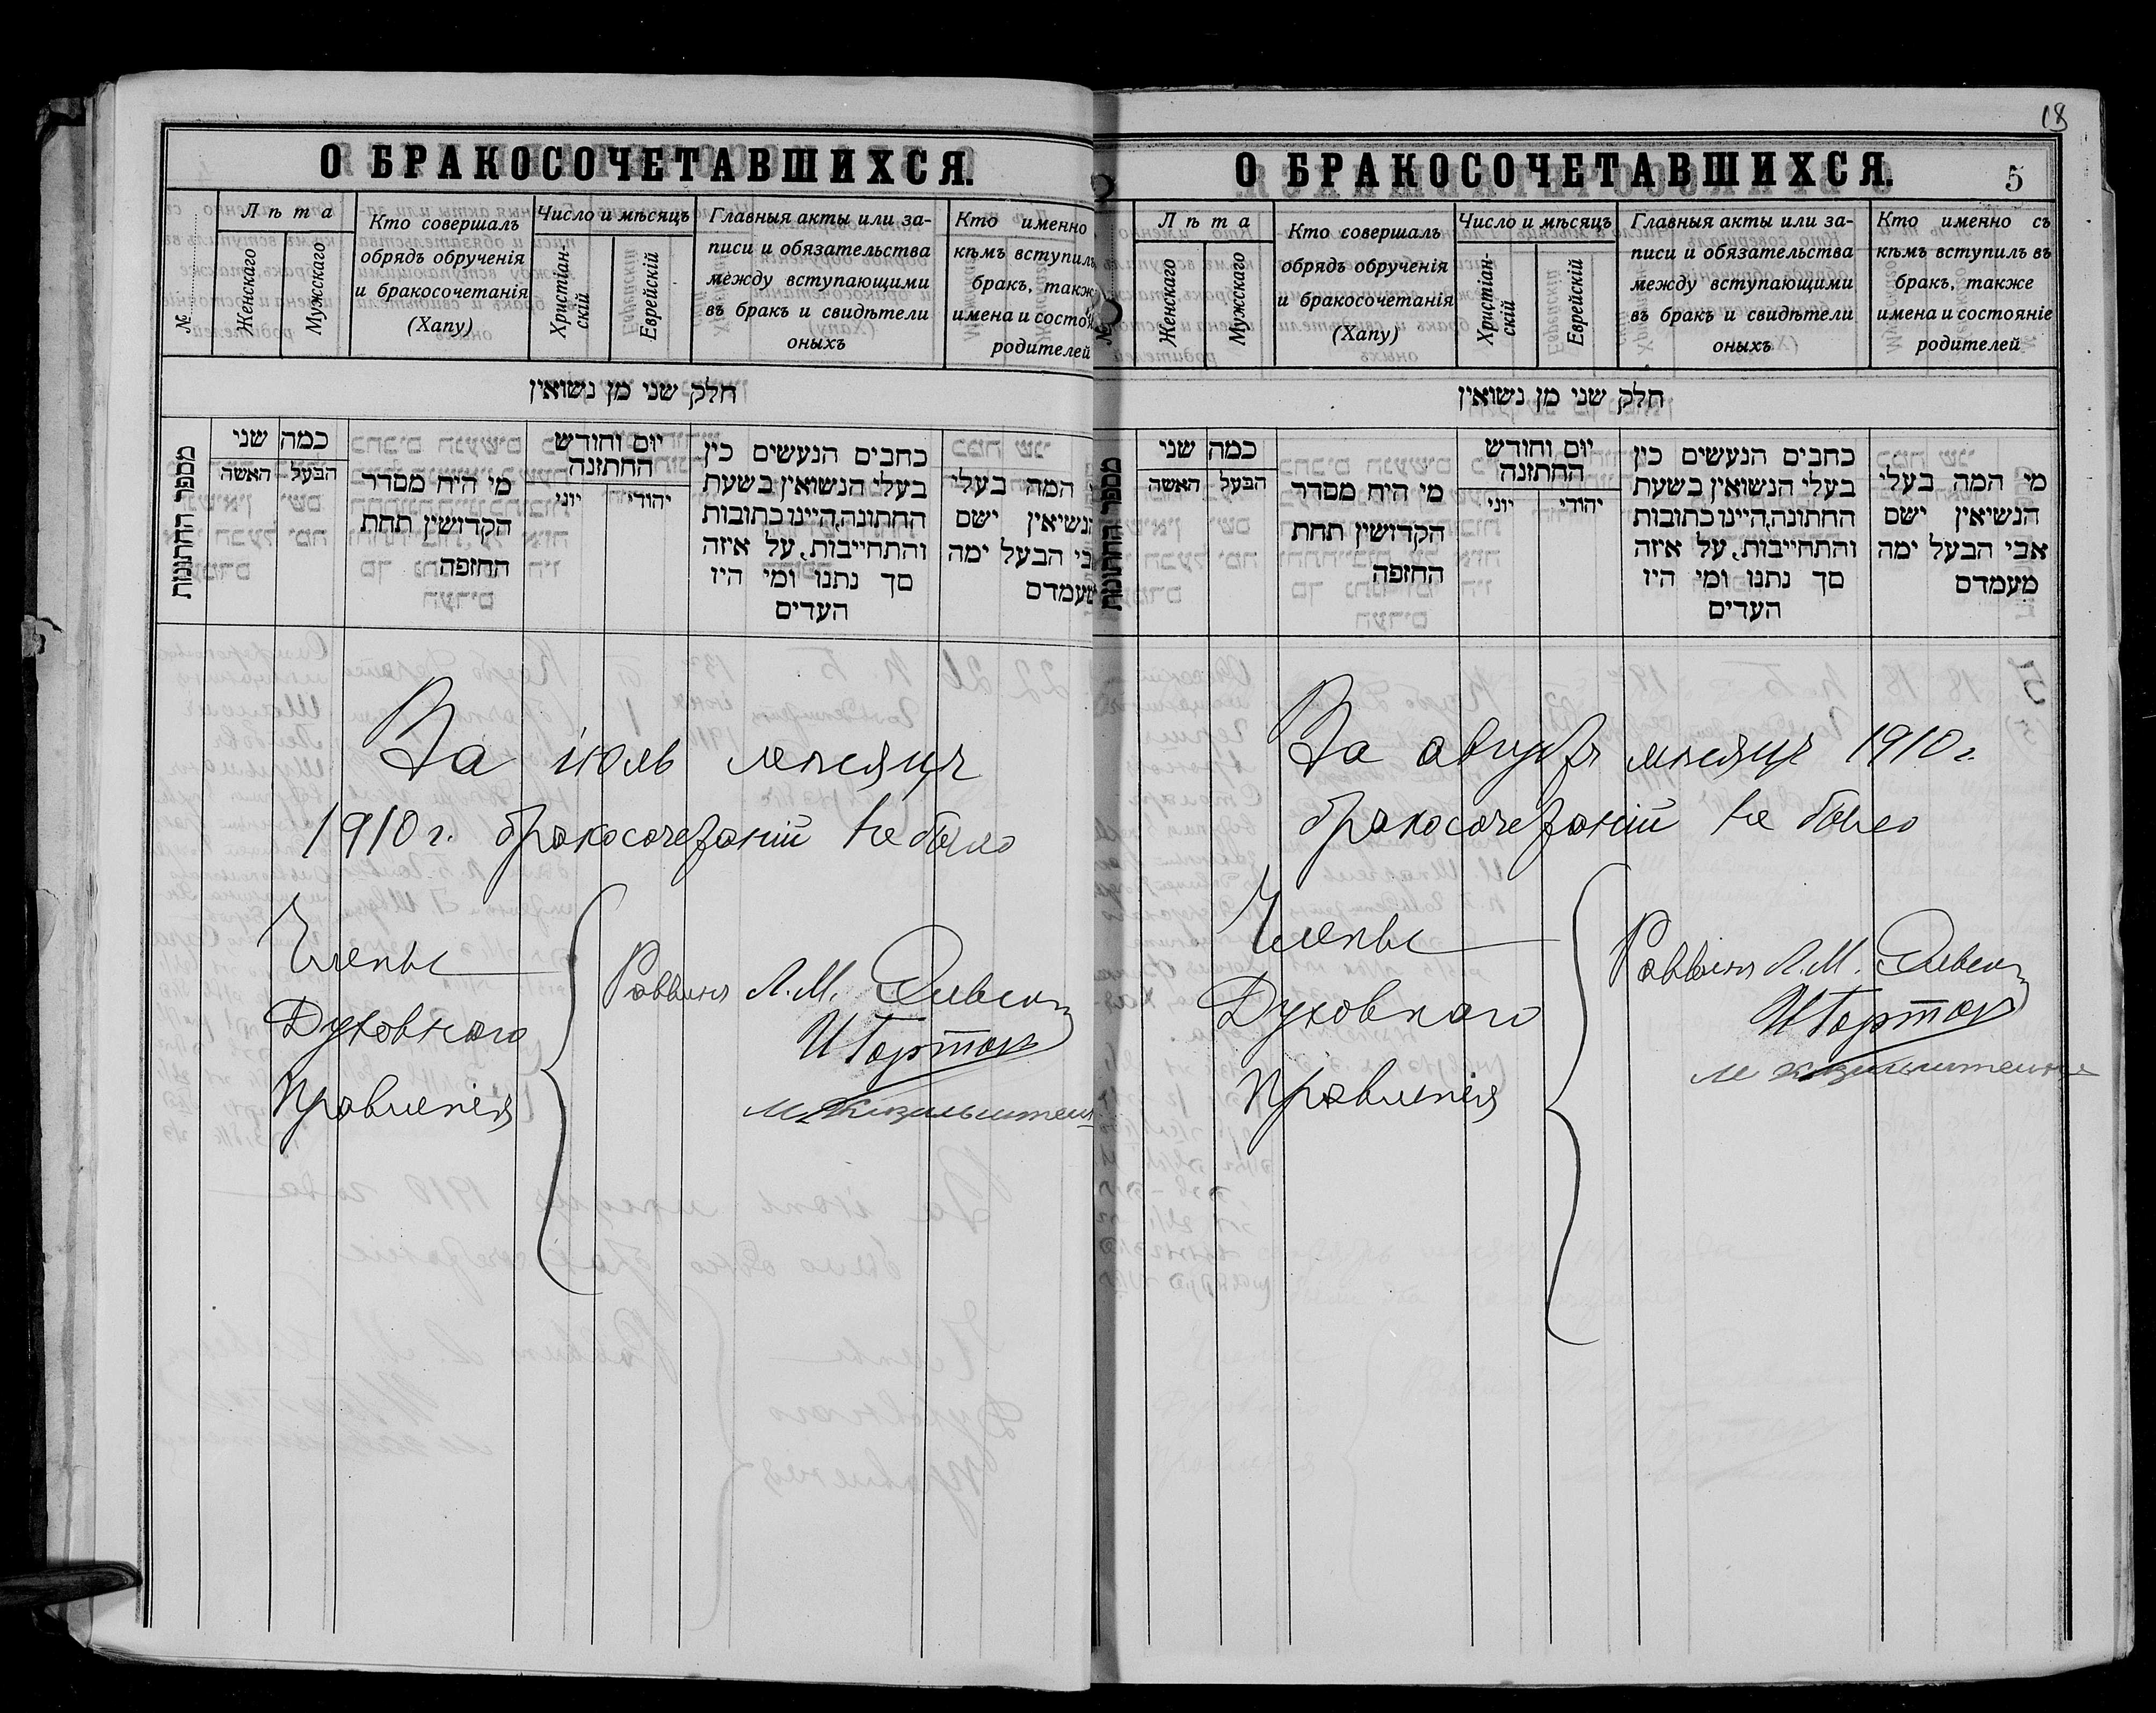 О БРАКОСОЧЕТАВШИХСЯ.
№
Лѣта
Женскаго
Мужскаго
Кто совершалъ
обрядъ обрученія
и бракосочетанія
(Хапу)
Число и мѣсяцъ
Христіан-
скій
Еврейскій
Главныя акты или за-
писи и обязательства
между вступающими
въ бракъ и свидѣтели
оныхъ
Кто именно
кѣмъ вступилъ
бракъ, такж
имена и состоя
родителей
חלק שני מן נשואין
מספר החתונות
כמה שני
הבעל האשה
מי היה מסדר
הקדושין תחת
החופה
יום וחודש
החתונה
יהודי יוני
כתבים הנעשים בין
בעלי הנשואין בשעת
החתונה, היינו כתובות
והתחייבות, על איזה
סך נתנו ומי היו
העדים
המה בעלי
הנשיאין ישם
אבי הבעל ימה
מעמדם
За іюль мѣсяцъ
1910 г. бракосочетаній не было
Члены
Духовного
Правленія
Раввинъ Л. М.
М. Кизильштейн
18
О БРАКОСОЧЕТАВШИХСЯ.
5
№
Лѣта
Женскаго
Мужскаго
Кто совершалъ
обрядъ обрученія
и бракосочетанія
(Хапу)
Число и мѣсяцъ
Христіан-
скій
Еврейскій
Главныя акты или за-
писи и обязательства
между вступающими
въ бракъ и свидѣтели
оныхъ
Кто именно съ
кѣмъ вступилъ въ
бракъ, также
имена и состояніе
родителей
חלק שני מן נשואין
מספר החתונות
כמה שני
הבעל האשה
מי היה מסדר
הקדושין תחת
החופה
יום וחודש
החתונה
יהודי יוני
כתבים הנעשים בין
בעלי הנשואין בשעת
החתונה, היינו כתובות
והתחייבות, על איזה
סך נתנו ומי היו
העדים
מי המה בעלי
הנשיאין ישם
אבי הבעל ימה
מעמדם
За августъ мѣсяцъ 1910 г.
бракосочетаній не было
Члены
Духовного
Правленія
Раввинъ Л. М.
М Кизильштейн